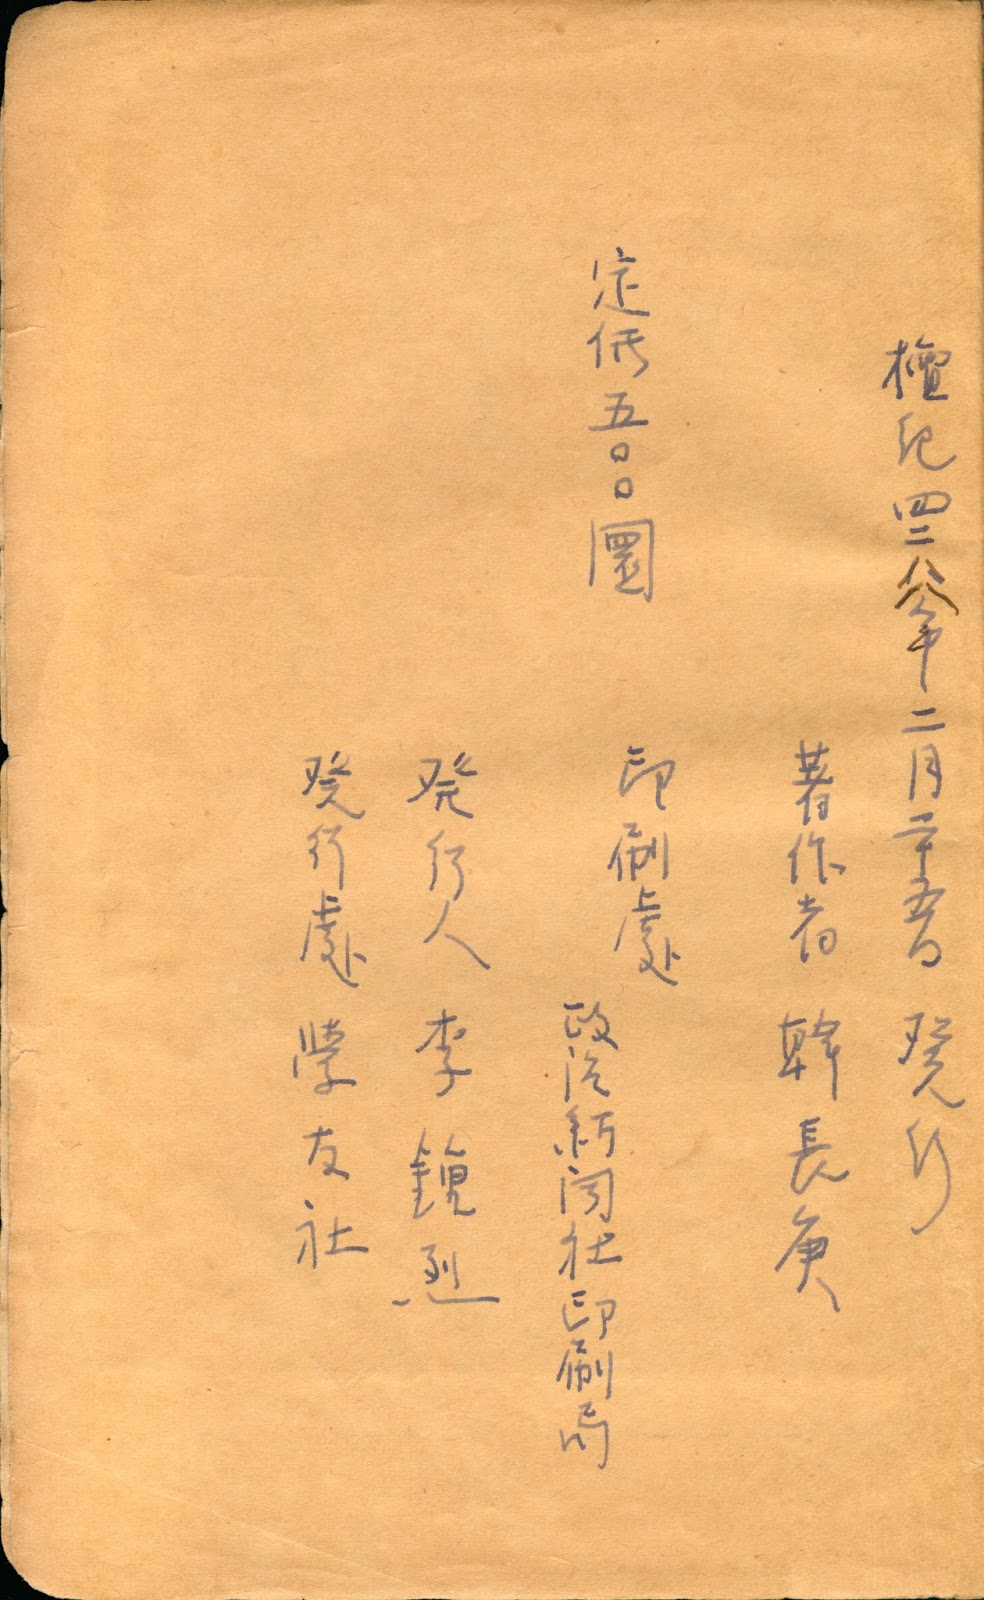 檀紀四二八八年二月二十五日 発行
著作者 韓長庚
定価五〇〇圜
印刷處 政治新聞社印刷局
発行人 李 烈
発行處 學友社